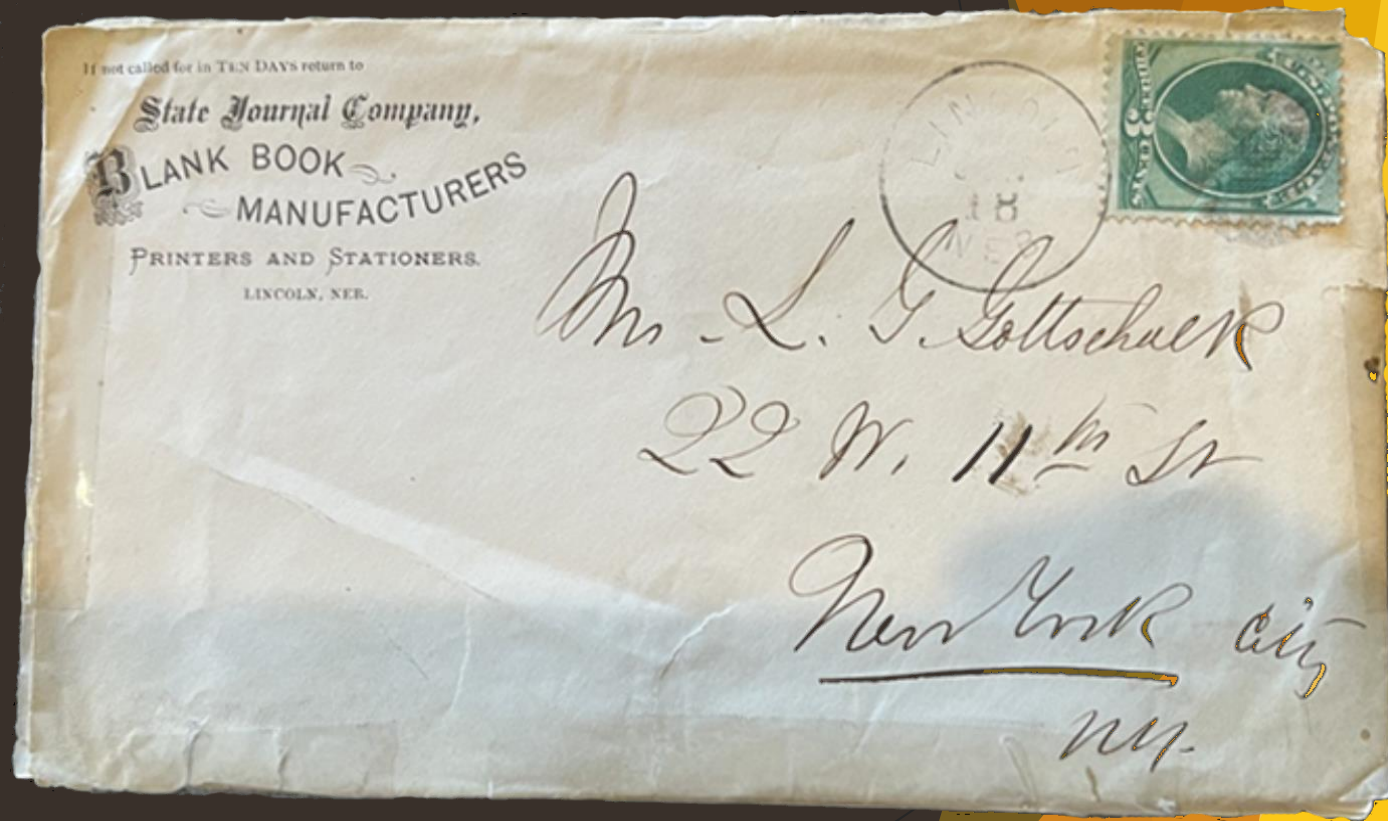 If not called for in TEN DAYS return to
State Journal Company,
BLANK BOOK
MANUFACTURERS
PRINTERS AND STATIONERS.
LINCOLN, NEB.
18
NEB
THREE 3 CENTS
Mr. L. G. Gottschalk
22 W. 11th St
New York City
N.Y.